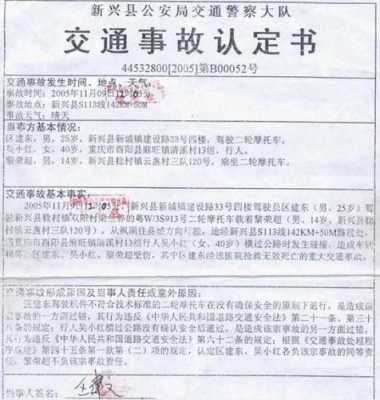 新兴县公安局交通警察大队
交通事故认定书
44532800[2005]第B00052号
交通事故发生时间、地点、天气:
事故时间:2005年11月09日
事故地点:新兴县S113线142KM+50M
事故天气:晴天
当事方基本情况:
区建东,男,25岁,新兴县新城镇建设路33号四楼,驾驶二轮摩托车。
吴小红,女,40岁,重庆市酉阳县麻旺镇清溪村13组,行人。
黎荣超,男,14岁,新兴县稔村镇云莲村三队120号,乘坐二轮摩托车。
交通事故基本事实:
2005年11月 新兴县新城镇建设路33号四楼驾驶员区建东(男,25岁)驾
驶新兴县稔村镇 的粤W/3S913号二轮摩托车载着黎荣超(男,14岁,新兴县稔
村镇云莲村三队120号),从枫洞往县城方向行驶,途经新兴县S113线142KM+50M路段处,
与重庆市酉阳县麻旺镇清溪村13组行人吴小红(女、40岁)横过公路时发生碰撞,造成车辆
损坏,区建东、吴小红、黎荣超受伤,其中区建东经送医院抢救无效死亡的重大交通事故。
交通事故形成原因及当事人责任或意外原因:
区建东驾驶机件不符合技术标准的二轮摩托车在没有确保安全的原则下通行,是造成该
事故的一方面过错,其行为违反《中华人民共和国道路交通安全法》第二十一条、第三十
八条的规定;行人吴小红横过公路没有确认安全后通过,是造成该事故的另一方面过错,
其行为违反《中华人民共和国道路交通安全法》第六十二条的规定;根据《交通事故处理程
序规定》第四十五条第一款第(二)项的规定,认定区建东、吴小红各负该宗事故的同等责
任,黎荣超不负该宗事故责任。
当事人签名: